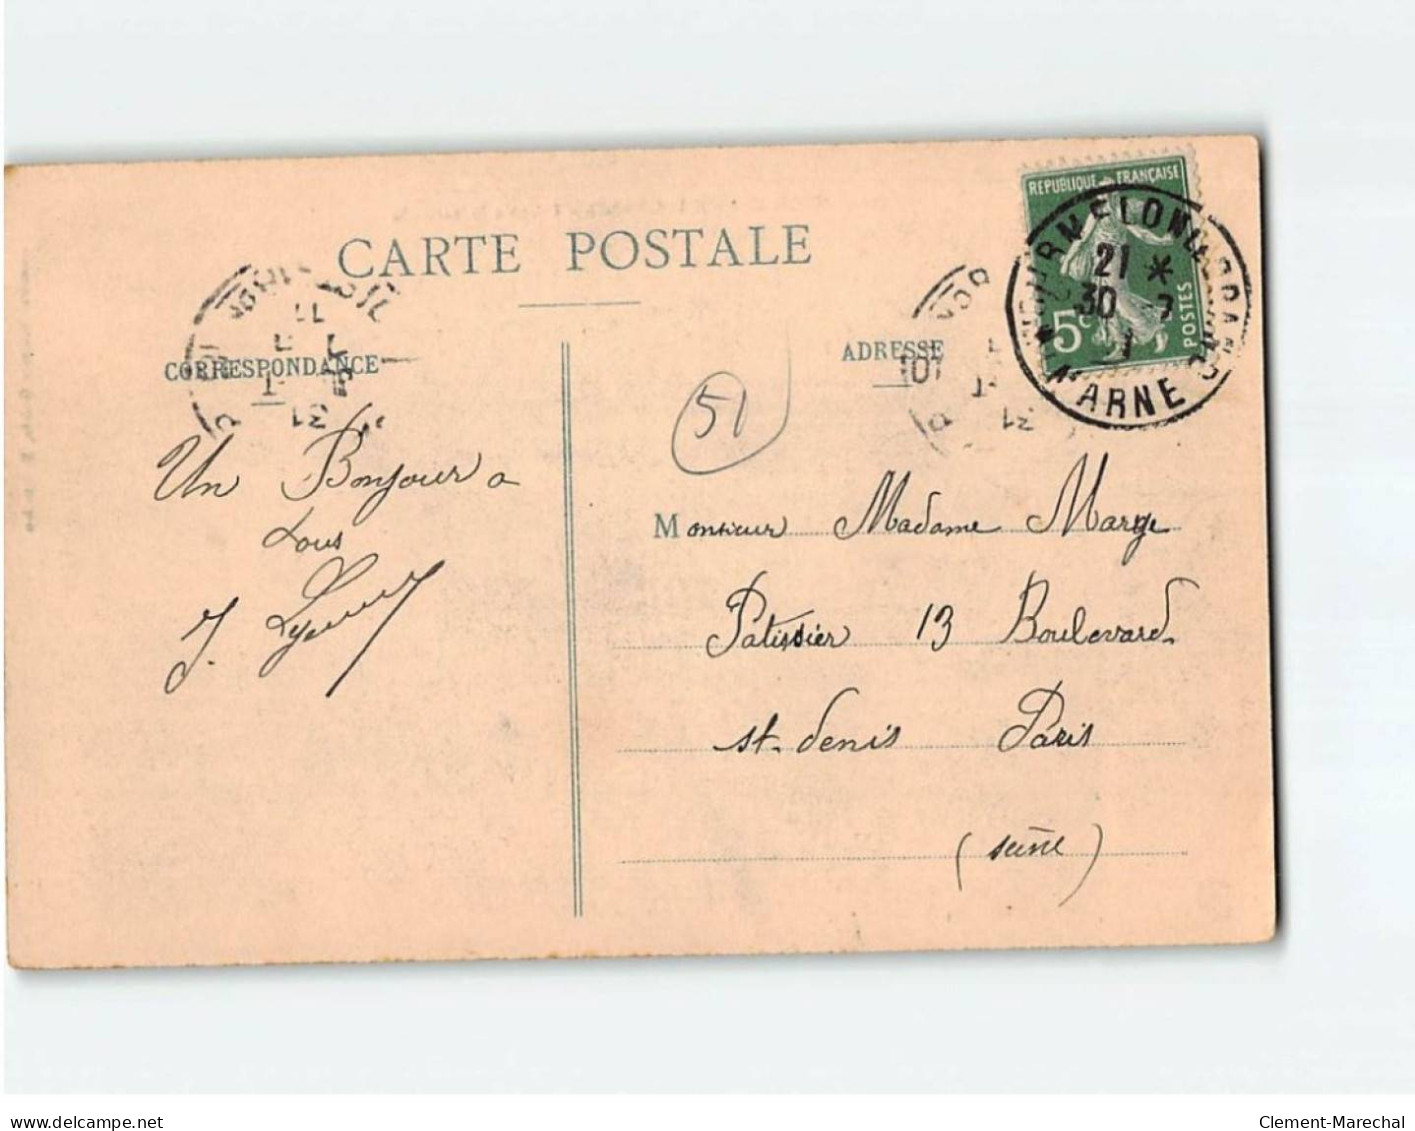 CARTE POSTALE
CORRESPONDANCE
ADRESSE
RÉPUBLIQUE FRANÇAISE
5c
POSTES
21 *
30
MARNE
31
31
51
Un Bonjour a
tous
J.
Monsieur Madame Marge
Patissier 13 Boulevard
st. denis Paris
(seine)
delcampe.net
Clement-Marechal